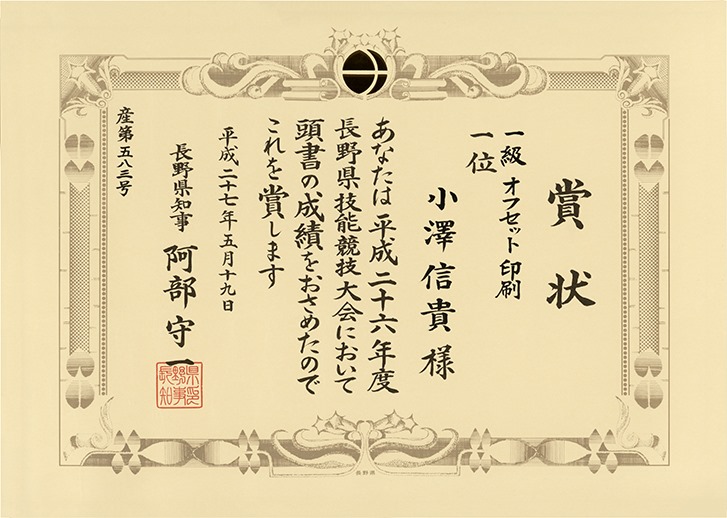 賞状
一級 オフセット印刷
一位
小澤信貴様
あなたは平成二十六年度
長野県技能競技大会において
頭書の成績をおさめたので
これを賞します
平成二十七年五月十九日
長野県知事 阿部守一
長野県知事印
産第五八三号
長野県